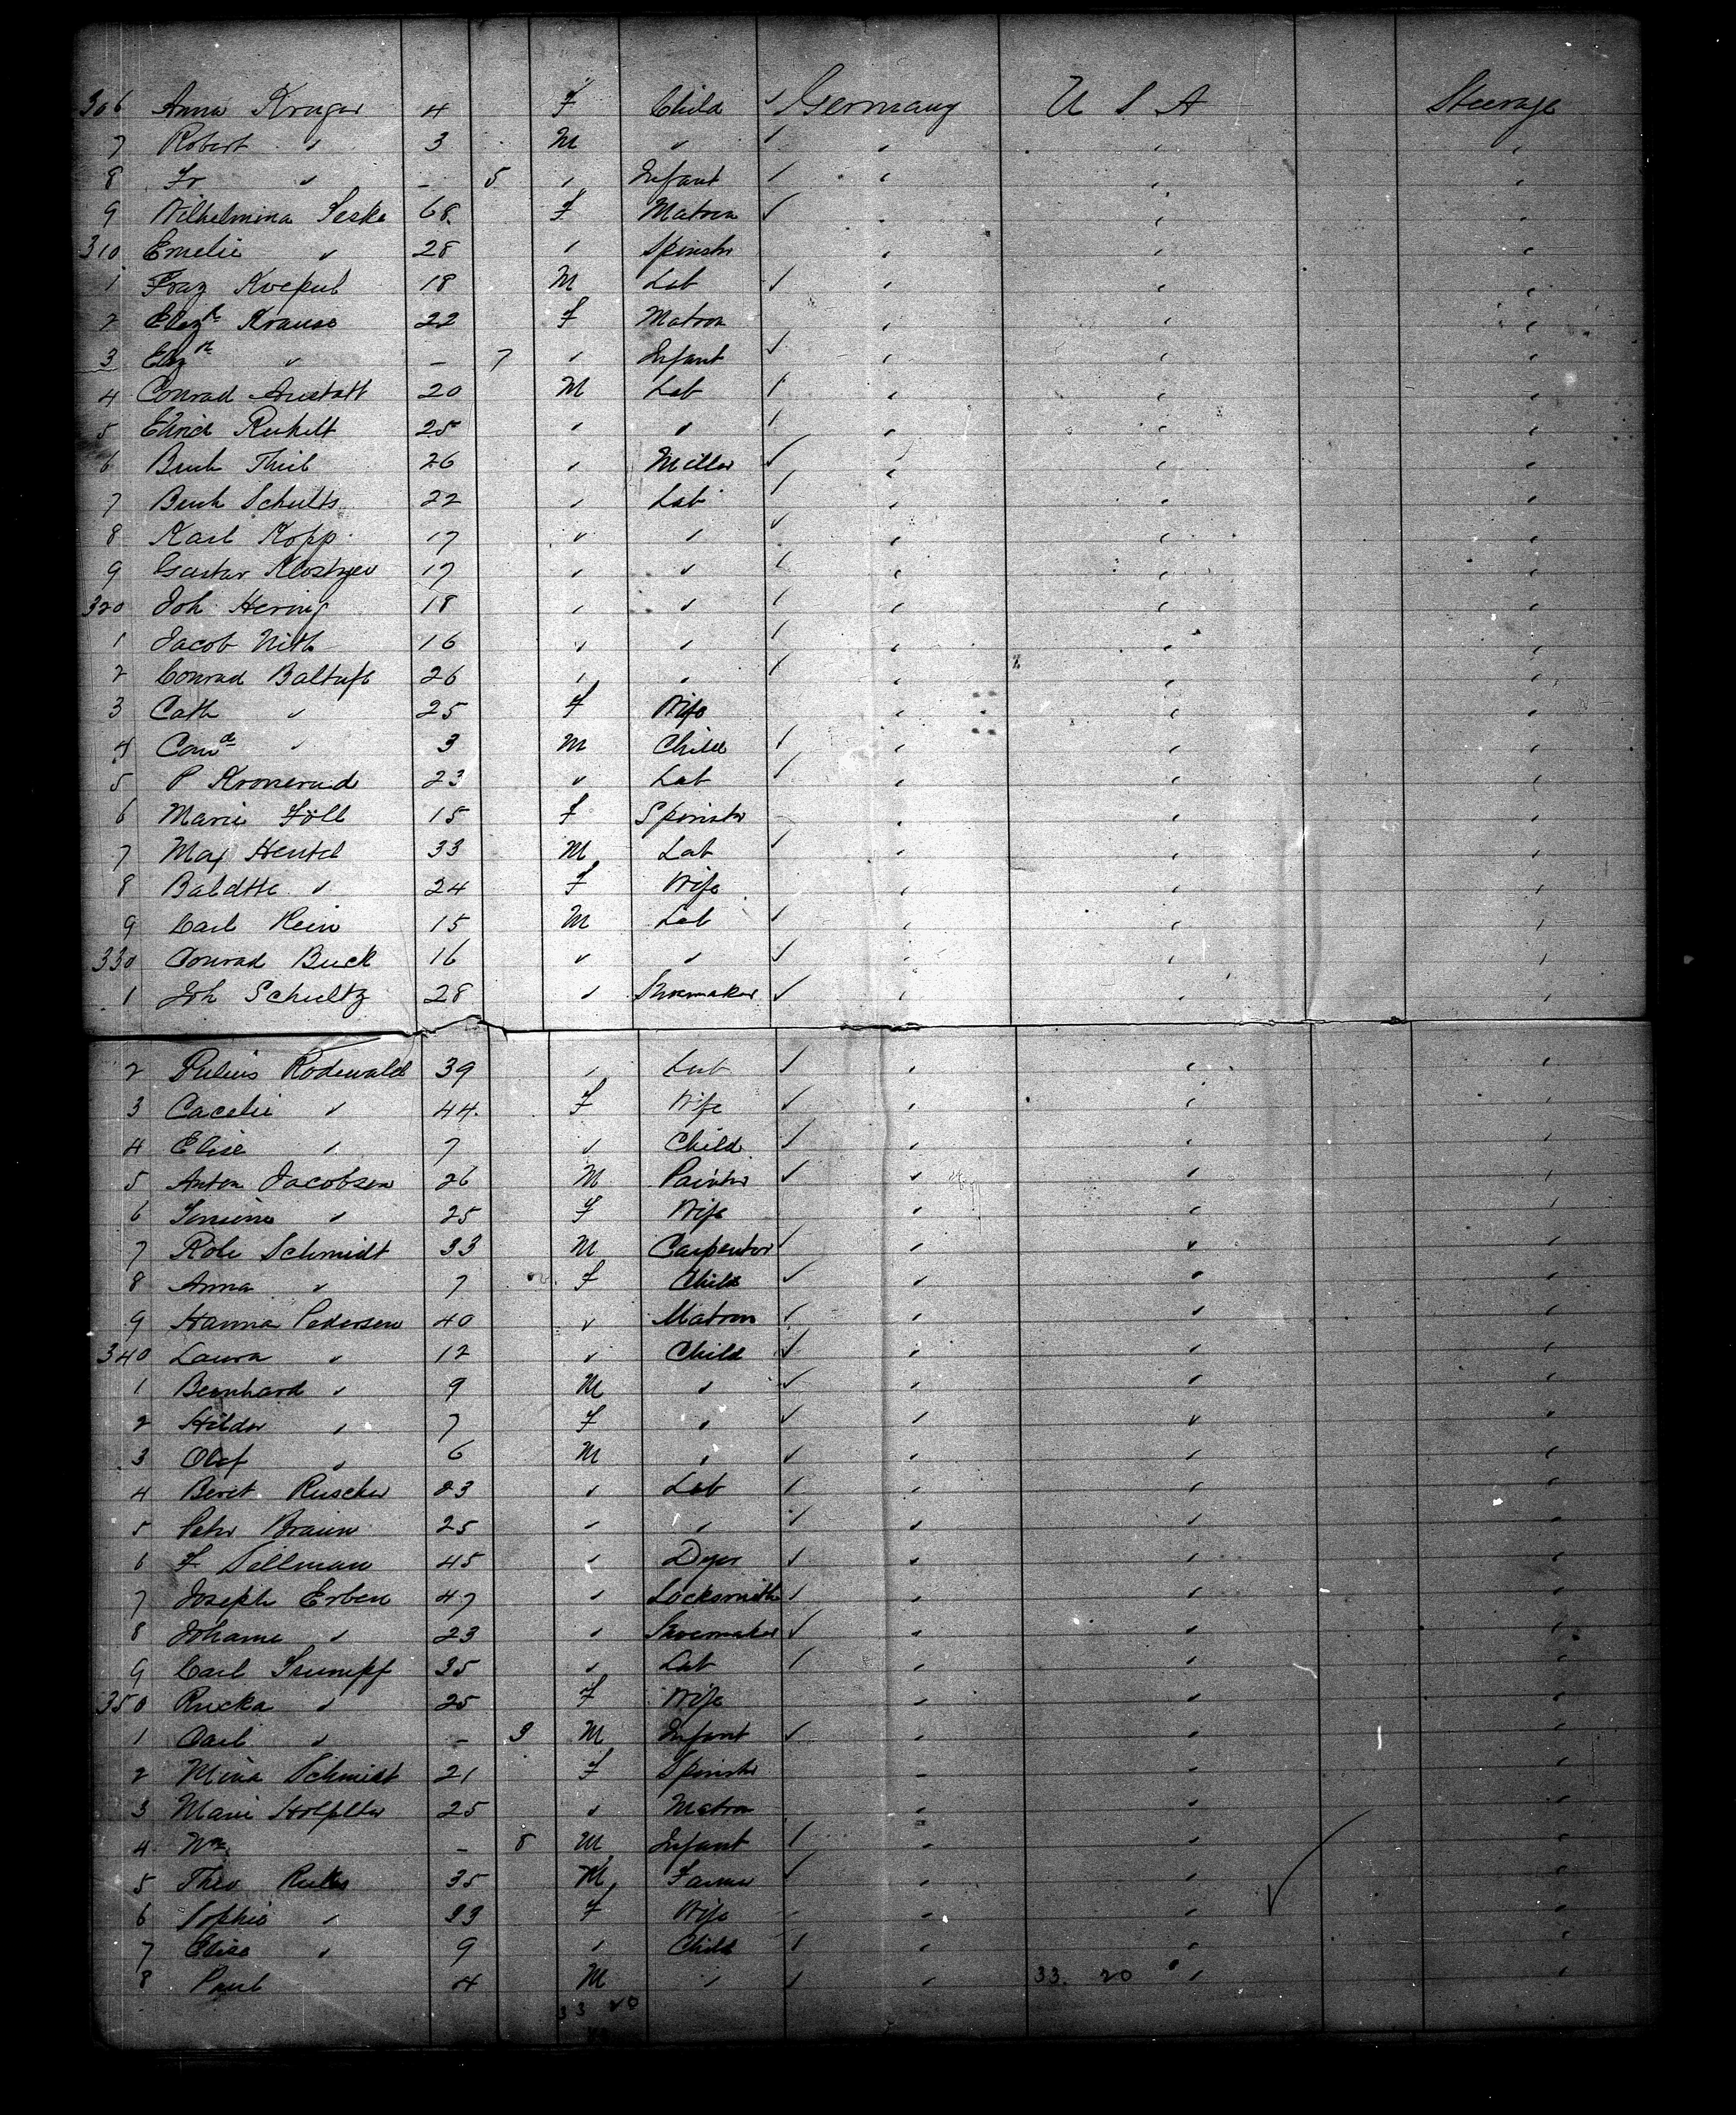 306 Anna Kruger 4 F Child ✓ Germany U S A Steerage
7 Robert " 3 M " ✓ " " "
8 Fr " – 5 " Infant ✓ " " "
9 Wilhelmina Seske 68 F Matron ✓ " " "
310 Emelie " 28 " Spinstr " " "
1 18 M Lab ✓ " " "
2 Elizh Krause 22 F Matron " " "
3 " – 7 " Infant ✓ " " "
4 Conrad 20 M Lab ✓ " " "
5 25 " " ✓ " " "
6 26 " Miller ✓ " " "
7 Schults 22 " Lab ✓ " " "
8 Karl Kopp 17 " " ✓ " " "
9 Gustav 17 " " ✓ " " "
320 Joh Hering 18 " " ✓ " " "
1 Jacob Nith 16 " " ✓ " " "
2 Conrad 26 " " ✓ " " "
3 Cath " 25 F Wife " " "
4 " 3 M Child ✓ " " "
5 P 23 " Lab ✓ " " "
6 Marie Föll 15 F Spinstr " " "
7 Max Hentel 33 M Lab ✓ " " "
8 " 24 F Wife " " "
9 Carl Hein 15 M Lab ✓ " " "
330 Conrad Buck 16 " " ✓ " " "
1 Joh Schultz 28 " Shoemaker ✓ " " "
2 Julius Rodewald 39 " Lab ✓ " " "
3 Cacelie " 44 F Wife ✓ " " "
4 Elise " 7 " Child ✓ " " "
5 Anton Jacobsen 26 M Painter ✓ " " "
6 " 25 F Wife " " "
7 Schmidt 33 M Carpentor ✓ " " "
8 Anna " 7 F Child ✓ " " "
9 Hanna Pedersen 40 " Matron ✓ " " "
340 Laura " 12 " Child ✓ " " "
1 Bernhard " 9 M " ✓ " " "
2 Hildor " 7 F " ✓ " " "
3 Olaf " 6 M " ✓ " " "
4 Ruscher 23 " Lab ✓ " " "
5 Peter Braun 25 " " ✓ " " "
6 F 45 " Dyer ✓ " " "
7 Joseph Erben 47 " Locksmith ✓ " " "
8 Johanne " 23 " Shoemaker ✓ " " "
9 Carl 35 " Lab ✓ " " "
350 Ricka " 25 F Wife " " "
1 Carl " – 9 M Infant ✓ " " "
2 Mina Schmidt 21 F Spinstr " " "
3 Marie 25 " Matron " " "
4 Wm – 8 M Infant ✓ " " "
5 Theo 35 M Farmer ✓ " " "
6 Sophie " 33 F Wife " " "
7 Elise " 9 " Child ✓ " " "
8 Paul 4 M " ✓ " 33. 20 " "
33 20